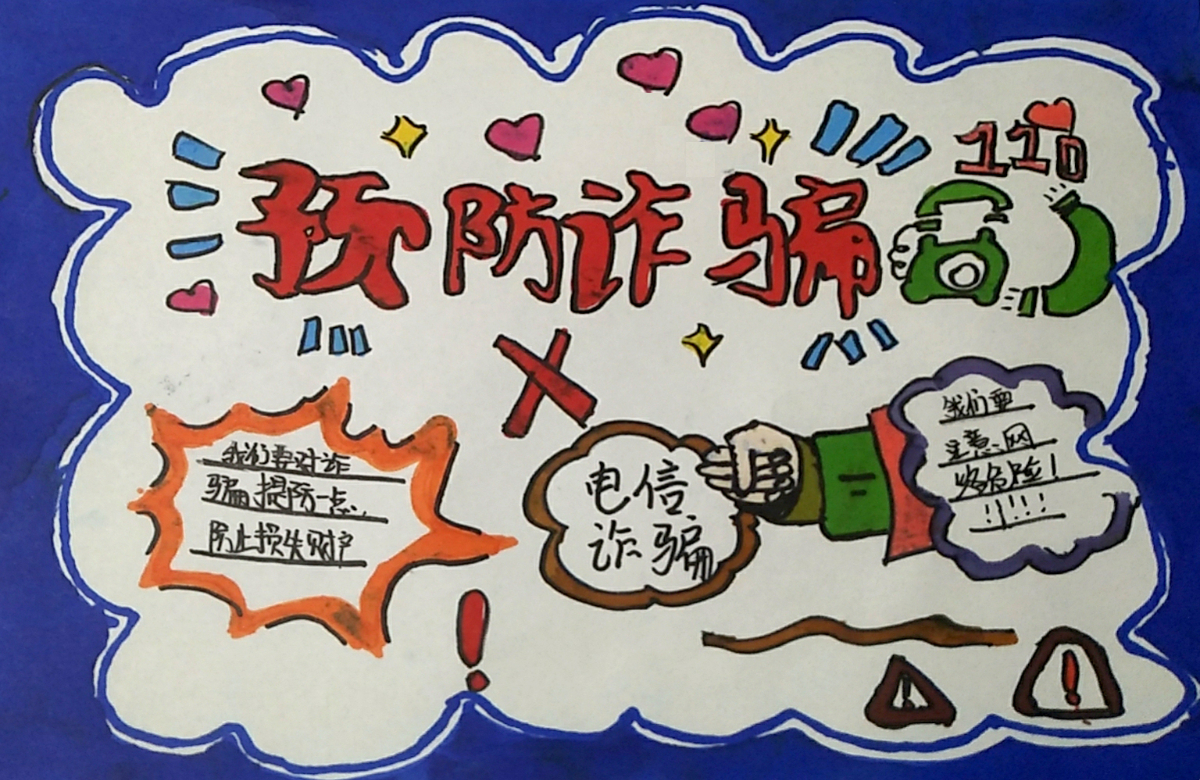 预防诈骗
110
我们要对诈
骗提防一点,
防止损失财产
电信
诈骗
我们要
注意网
络危险!
!!!!